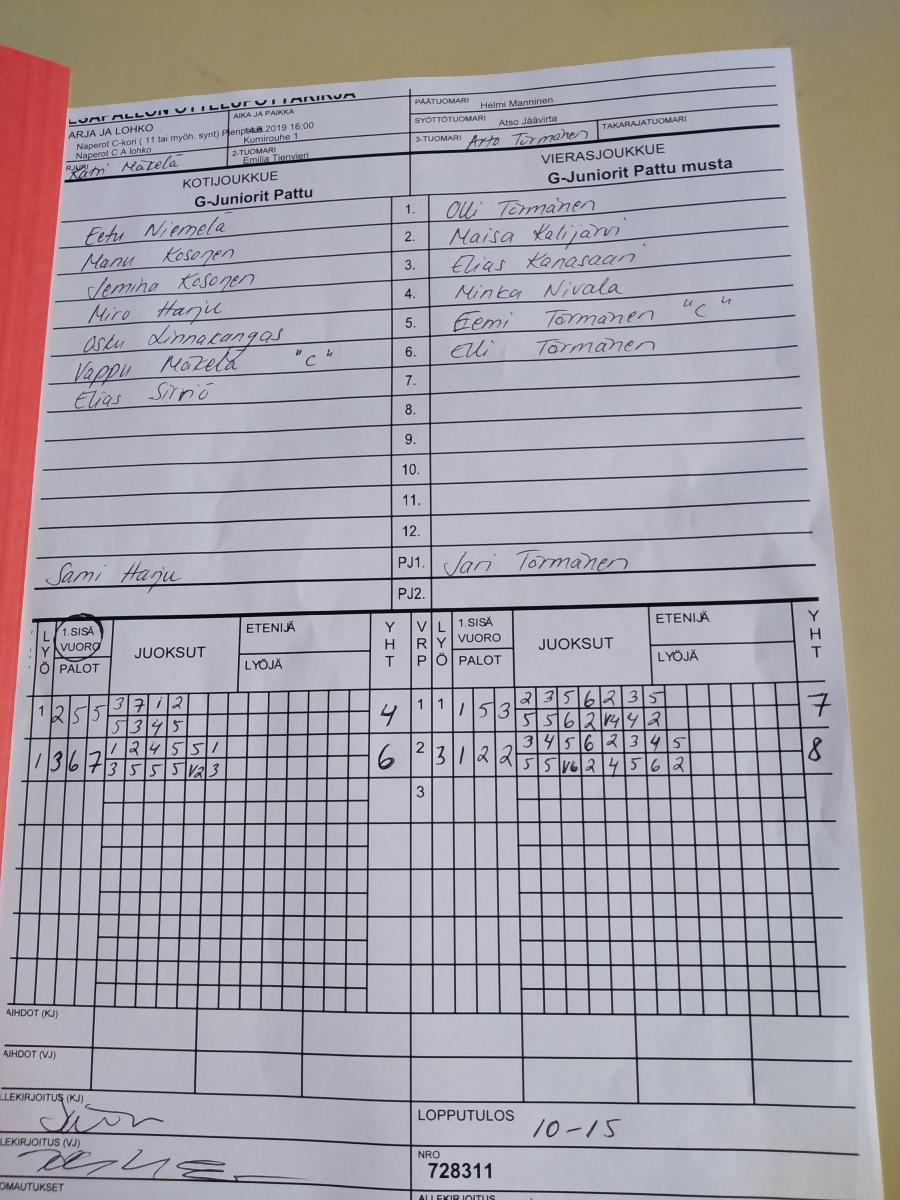 PESAPALLON OTTELUPÖYTÄKIRJA
ARJA JA LOHKO
Naperot C-kori ( 11 tai myöh. synt)
Naperot C A lohko
AIKA JA PAIKKA
2019 16:00
Kumirouhe 1
2-TUOMARI
Emilia Tienvieri
Katri Mäkelä
PÄÄTUOMARI Helmi Manninen
SYÖTTÖTUOMARI Atso Jäävirta
3-TUOMARI Arto Törmänen TAKARAJATUOMARI
KOTIJOUKKUE
G-Juniorit Pattu
VIERASJOUKKUE
G-Juniorit Pattu musta
Eetu Niemelä 1. Olli Törmänen
Manu Kosonen 2. Maisa Kalijärvi
Jemina Kosonen 3. Elias Kanasaari
Miro Harju 4. Minka Nivala
Osku Linnakangas 5. Eemi Törmänen "C"
Vappu Mäkelä "C" 6. Elli Törmänen
Elias Sirniö 7.
8.
9.
10.
11.
12.
Sami Harju PJ1. Jari Törmänen
PJ2.
LYÖ 1.SISÄ VUORO PALOT JUOKSUT ETENIJÄ LYÖJÄ YHT VRP LYÖ 1.SISÄ VUORO PALOT JUOKSUT ETENIJÄ LYÖJÄ YHT
1 2 5 5 3 7 1 2 4 1 1 1 5 3 2 3 5 6 2 3 5 7
5 3 4 5 5 5 6 2 V4 4 2
1 3 6 7 1 2 4 5 5 1 6 2 3 1 2 2 3 4 5 6 2 3 4 5 8
3 5 5 5 V2 3 5 5 V6 2 4 5 6 2
3
AIHDOT (KJ)
AIHDOT (VJ)
LLEKIRJOITUS (KJ)
LOPPUTULOS 10-15
LLEKIRJOITUS (VJ)
NRO
728311
OMAUTUKSET
ALLEKIRJOITUS